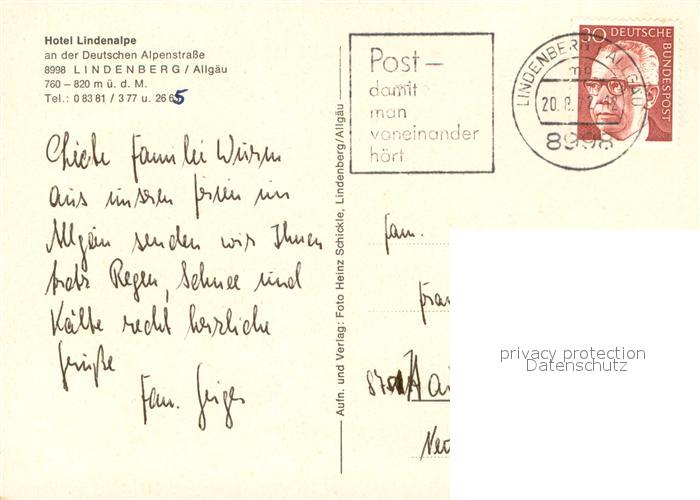 Hotel Lindenalpe
an der Deutschen Alpenstraße
8998 LINDENBERG / Allgäu
760 – 820 m ü. d. M.
Tel.: 0 83 81 / 3 77 u. 26 65
Liebe Familie
aus unseren Ferien im
Allgäu senden wir Ihnen
trotz Regen, Schnee und
Kälte recht herzliche
Grüße
Fam. Geiger
Aufn. und Verlag: Foto Heinz Schickle, Lindenberg/Allgäu
Post –
damit
man
voneinander
hört
LINDENBERG ALLGÄU
20.8.
8998
30 DEUTSCHE
BUNDESPOST
Fam.
privacy protection
Datenschutz